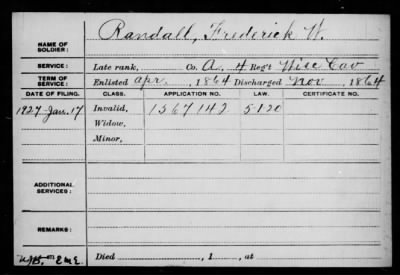 Randall, Frederick W.
NAME OF SOLDIER:
SERVICE: Late rank, Co. A, 4 Reg't Wisc Cav
TERM OF SERVICE: Enlisted Apr, 1864 Discharged Nov, 1864
DATE OF FILING. CLASS. APPLICATION NO. LAW. CERTIFICATE NO.
1927-Jan. 17 Invalid, 1567142 5120
Widow,
Minor,
ADDITIONAL SERVICES:
REMARKS:
Died , 1 , at